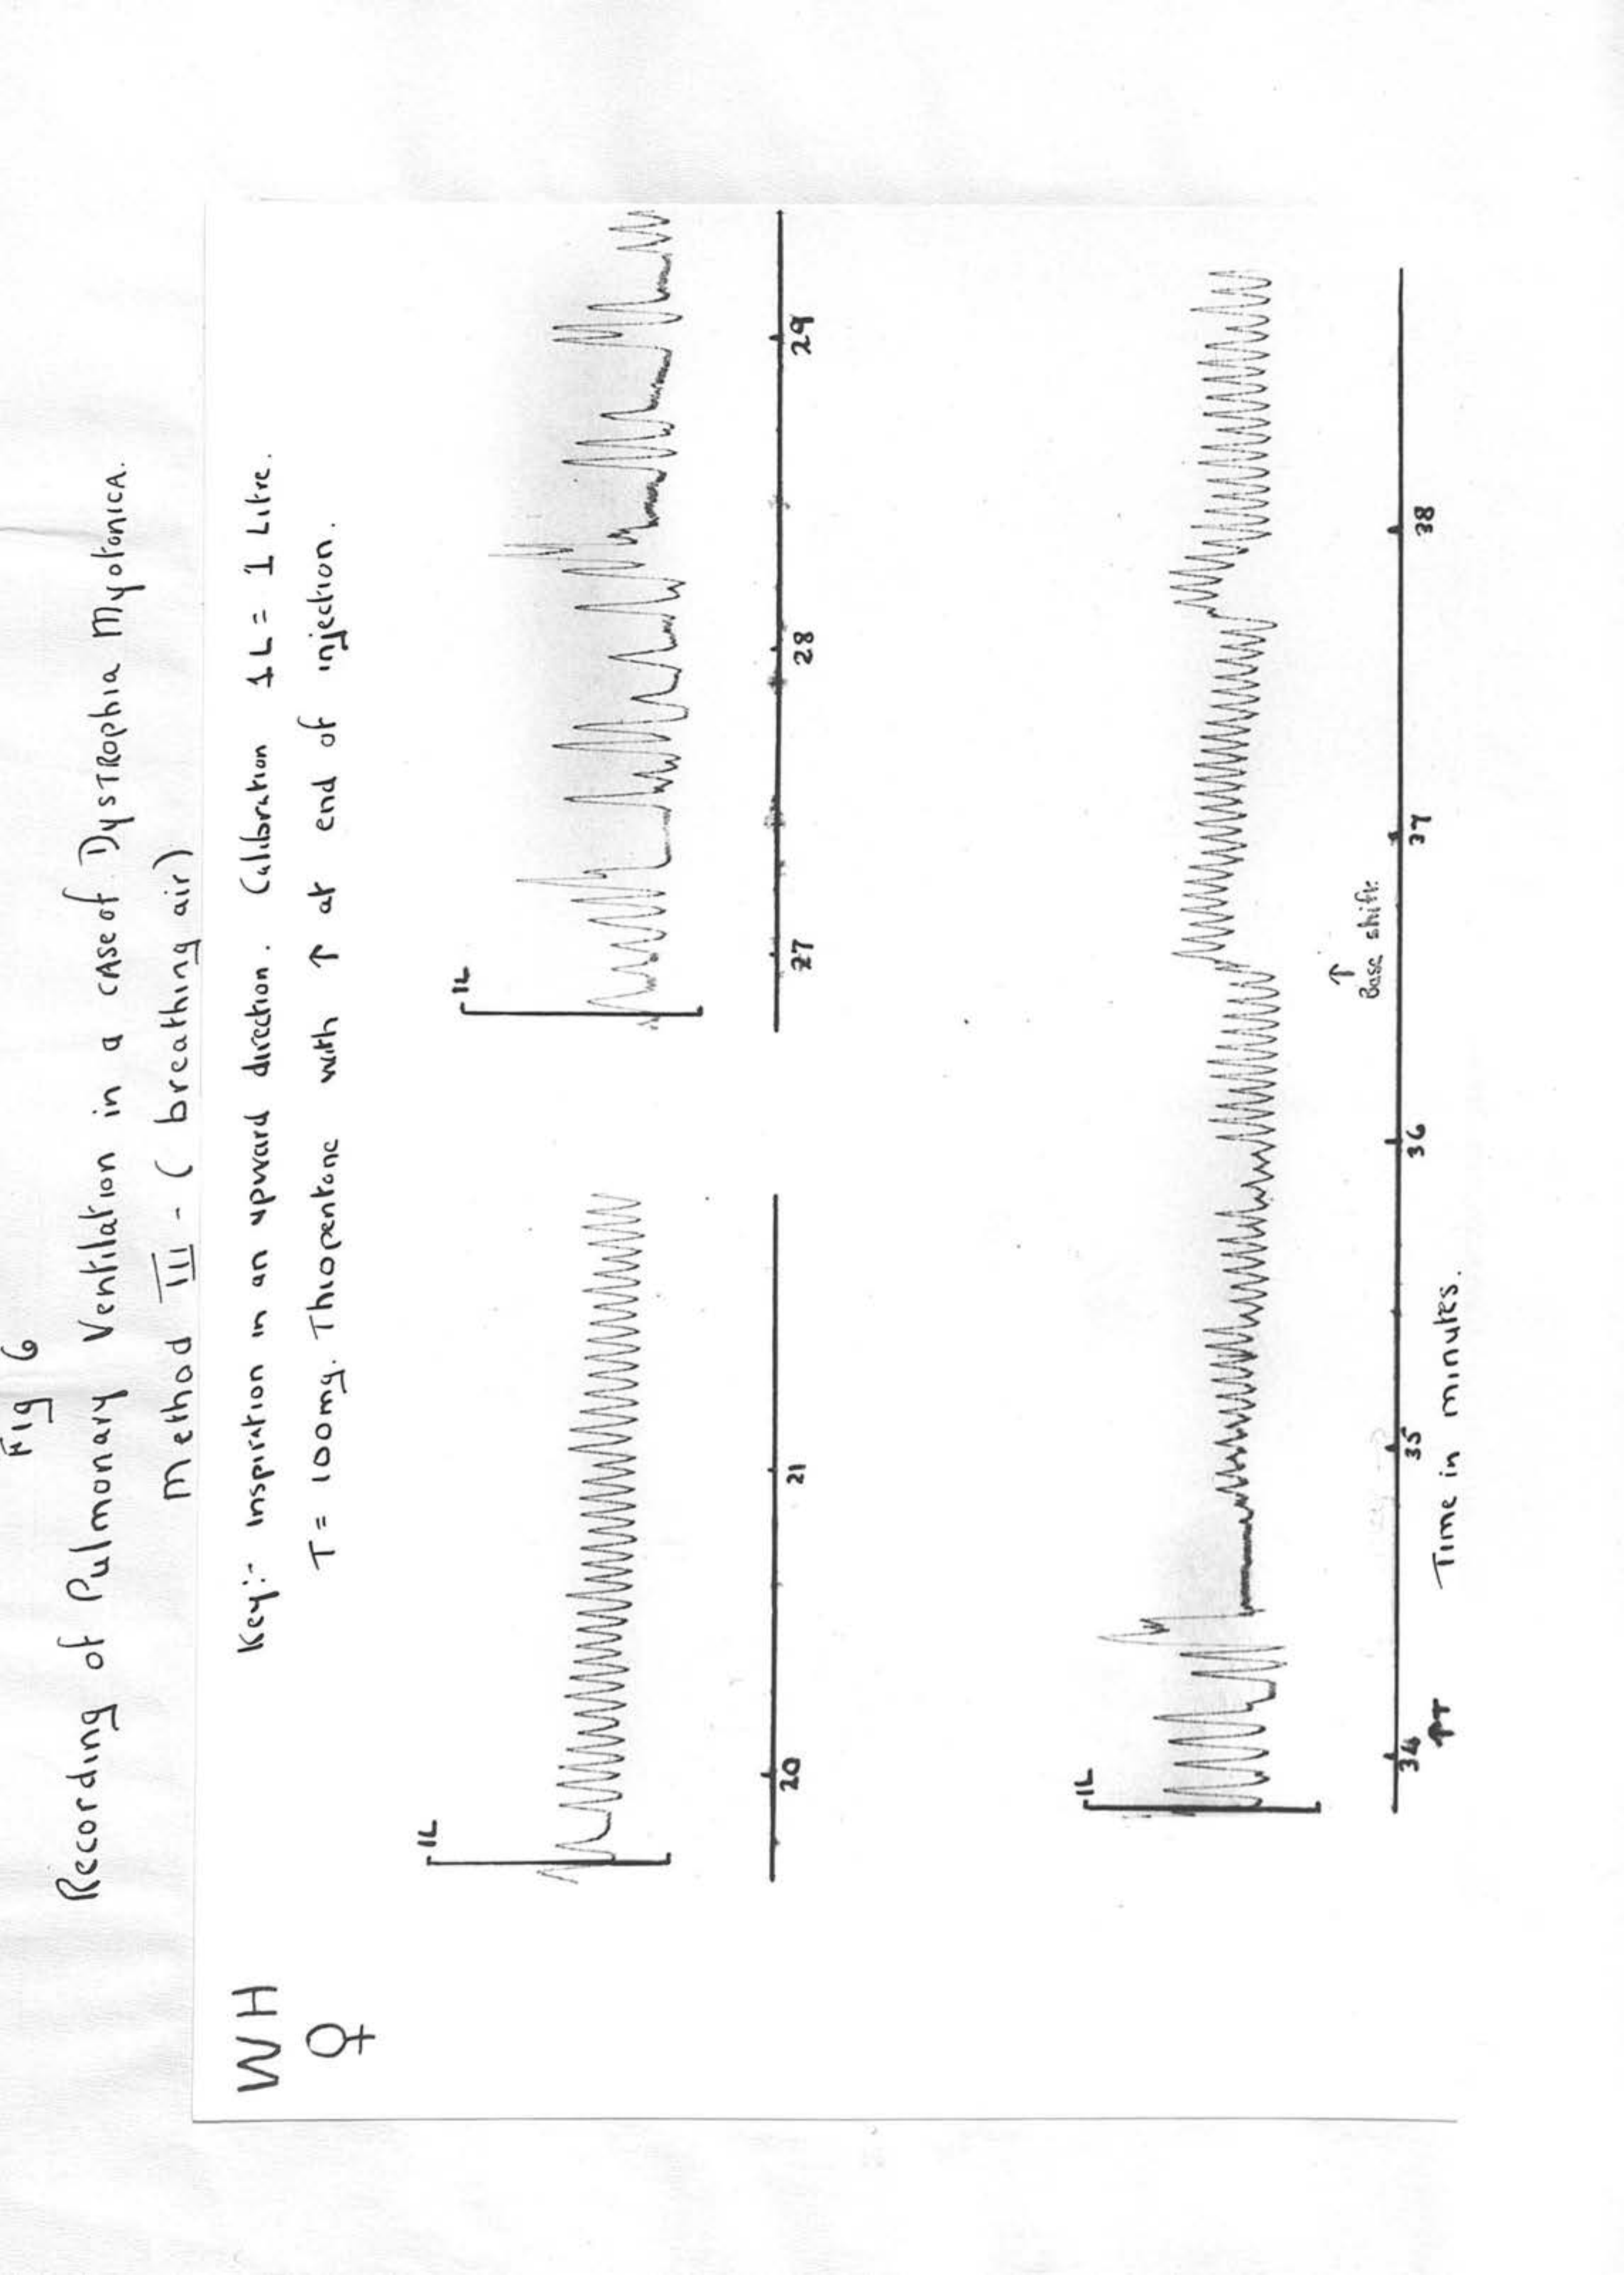 Fig 6
Recording of Pulmonary Ventilation in a case of Dystrophia Myotonica.
Method III - ( breathing air)
WH
♀
Key:- Inspiration in an upward direction. Calibration 1L = 1 Litre.
T = 100mg. Thiopentone with ↑ at end of injection.
1L
20
21
1L
27
28
29
1L
34
35
36
37
38
↑T
↑
Base shift.
Time in minutes.